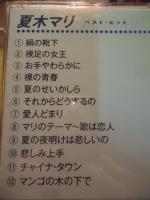 夏木マリ ベスト・ヒット
① 絹の靴下
② 裸足の女王
③ お手やわらかに
④ 裸の青春
⑤ 夏のせいかしら
⑥ それからどうするの
⑦ 愛人どまり
⑧ マリのテーマ〜歌は恋人
⑨ 夏の夜明けは悲しいの
⑩ 悲しみ上手
⑪ チャイナ・タウン
⑫ マンゴの木の下で